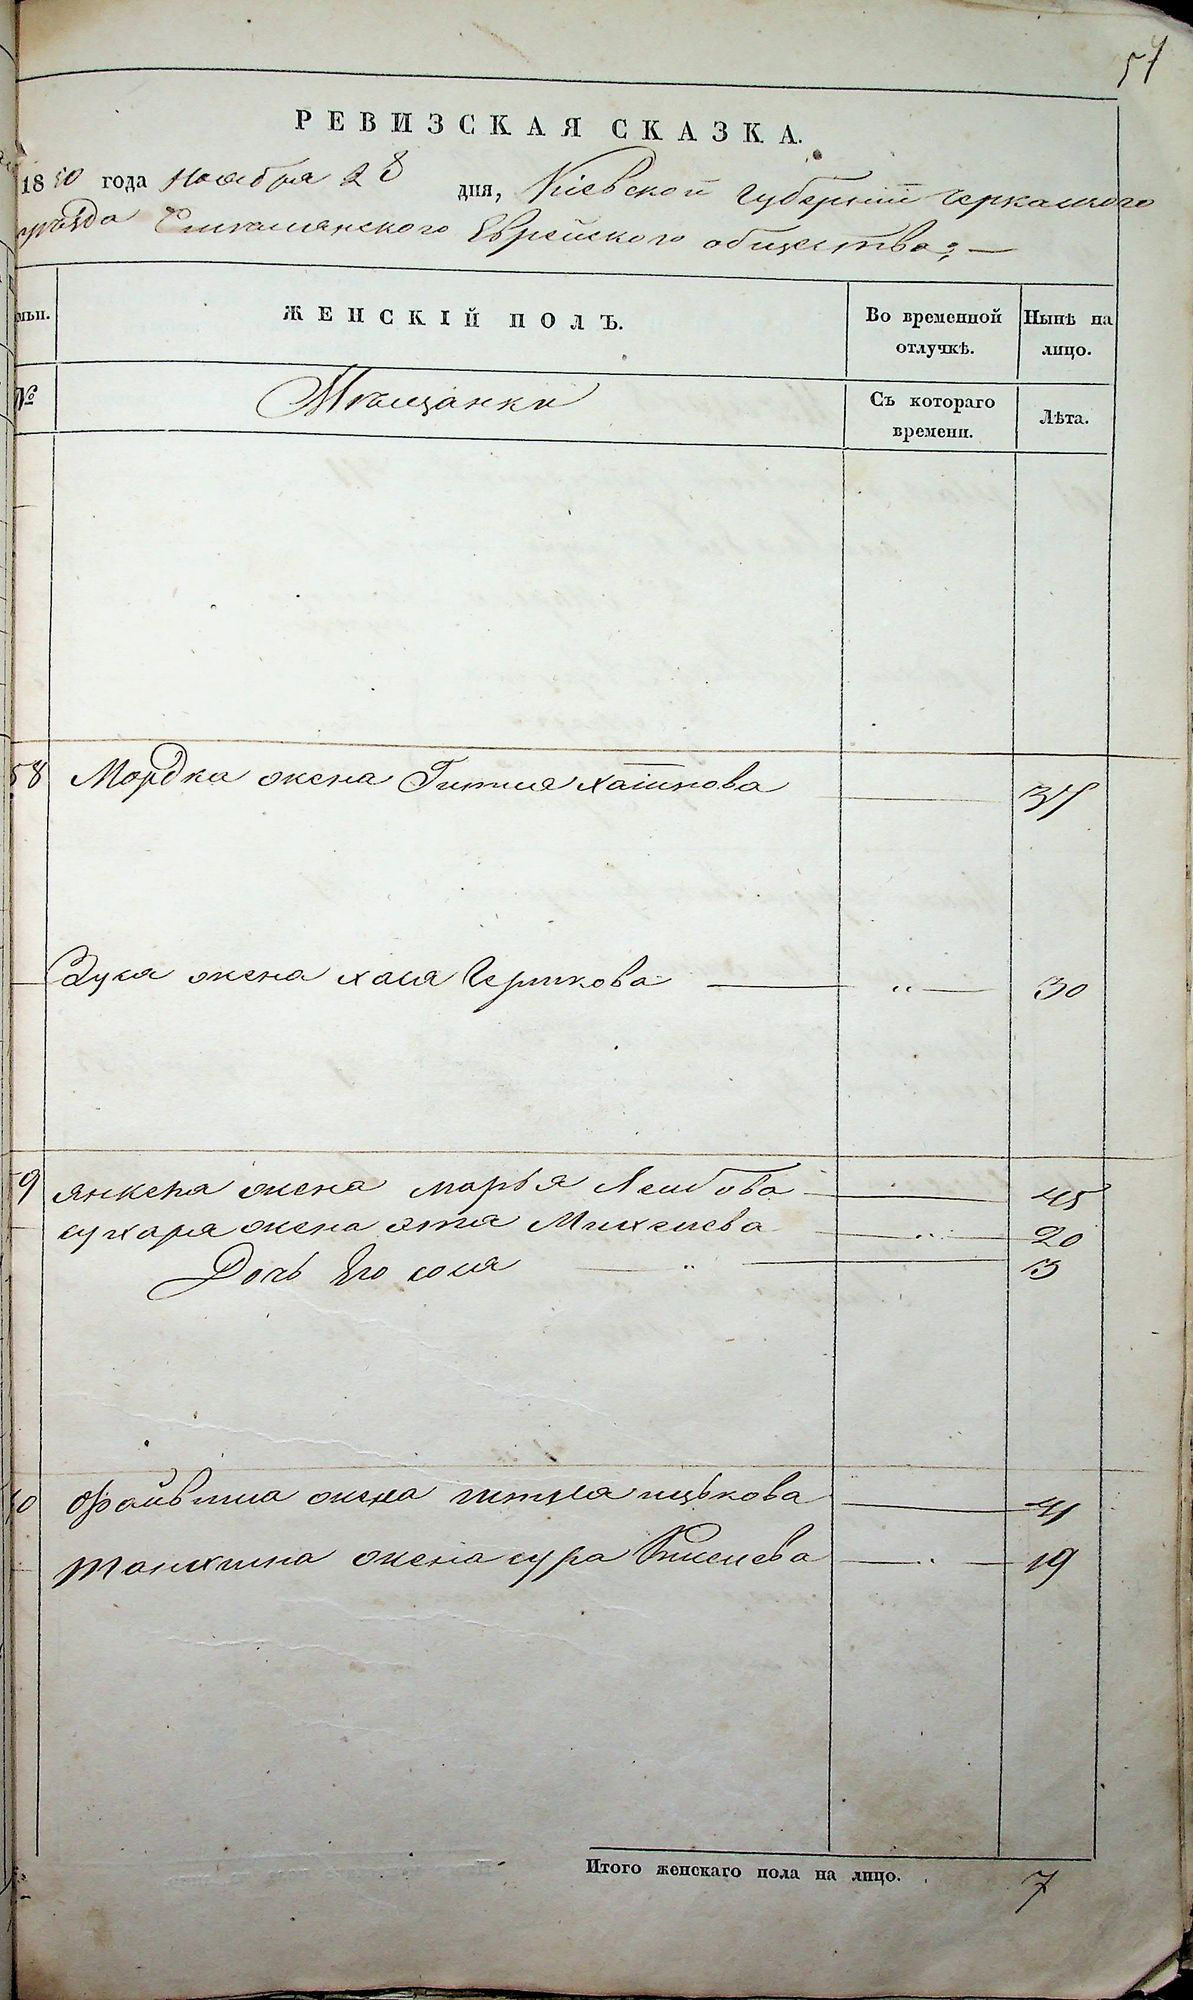 57
РЕВИЗСКАЯ СКАЗКА.
1850 года Ноября 28 дня, Киевской Губерніи Черкаского
уѣзда Еврейского общества;—
ЖЕНСКІЙ ПОЛЪ.
Во временной
отлучкѣ.
Нынѣ на
лицо.
№
Мѣщанки
Съ котораго
времени.
Лѣта.
58 Мордка жена Гитля Хаимова 37
жена хая Гершкова — " — 30
59 янкеля жена марья Леибова 45
жена Михелева — " — 20
Дочь Его — " —
60 файвиша жена ицькова 41
жена сура — " — 19
Итого женскаго пола на лицо. 7